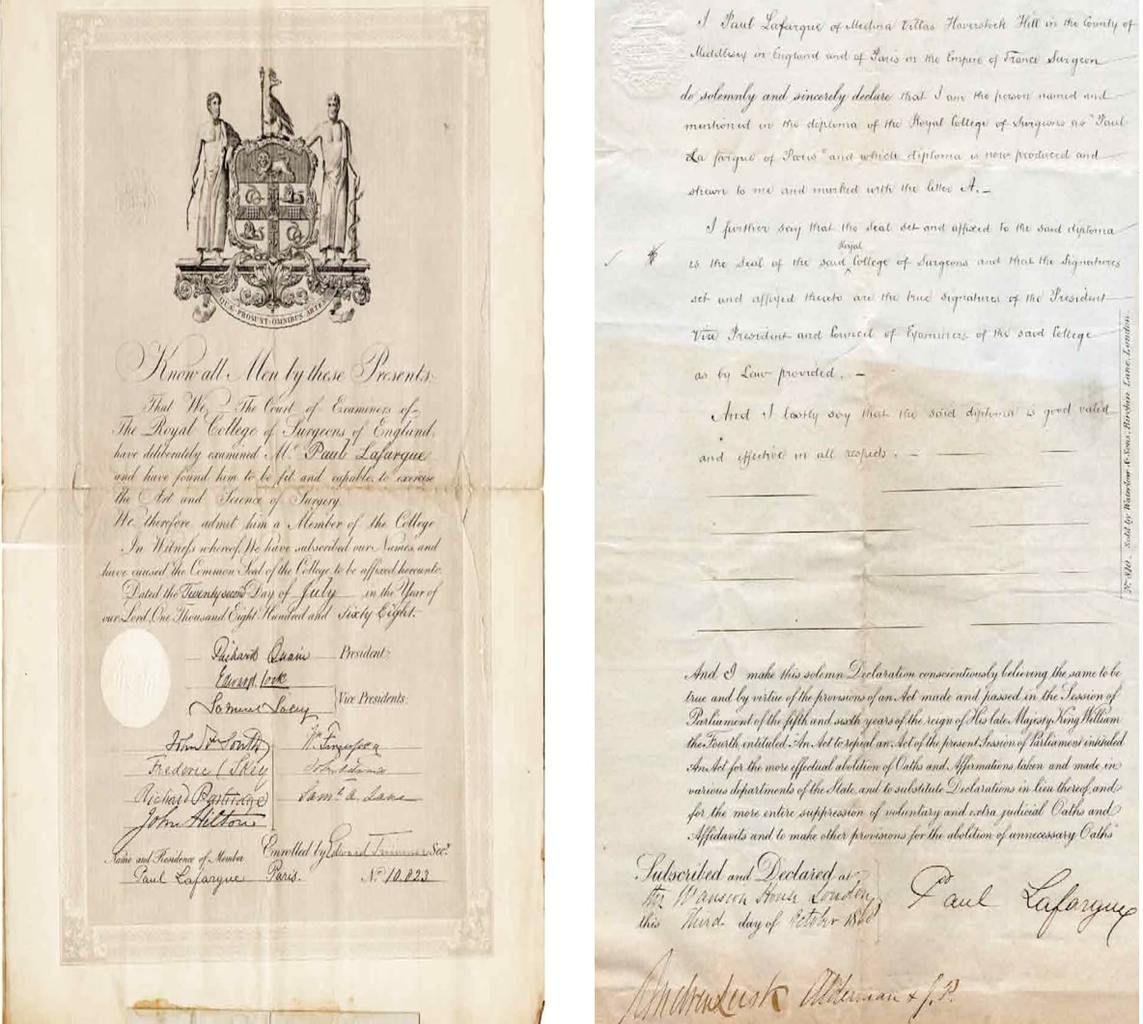 QUÆ PROSUNT OMNIBUS ARTES
Know all Men by these Presents
That We The Court of Examiners of
The Royal College of Surgeons of England,
have deliberately examined Mr. Paul Lafargue
and have found him to be fit and capable to exercise
the Art and Science of Surgery.
We therefore admit him a Member of the College
In Witness whereof, We have subscribed our Names, and
have caused the Common Seal of the College to be affixed hereunto.
Dated the Twenty second Day of July in the Year of
our Lord, One Thousand Eight Hundred and Sixty Eight.
Richard Quain President
Edward Cock
Samuel Solly Vice Presidents
John F South
Frederic C Skey John Adams
Richard Partridge Saml. A. Lane
John Hilton
Name and Residence of Member Enrolled by Edward Trimmer Secy.
Paul Lafargue Paris. No. 10,823
I Paul Lafargue of Medina Villas Haverstock Hill in the County of
Middlesex in England and of Paris in the Empire of France Surgeon
do solemnly and sincerely declare that I am the person named and
mentioned in the diploma of the Royal College of Surgeons as "Paul
La fargue of Paris" and which diploma is now produced and
shewn to me and marked with the letter A. —
I further say that the Seal set and affixed to the said diploma
is the Seal of the said Royal College of Surgeons and that the signatures
set and affixed thereto are the true signatures of the President
Vice President and Council of Examiners of the said College
as by Law provided. —
And I lastly say that the said diploma is good valid
and effective in all respects. —
No. 810. Sold by Waterlow & Sons, Birchin Lane, London.
And I make this solemn Declaration conscientiously believing the same to be
true and by virtue of the provisions of an Act made and passed in the Session of
Parliament of the fifth and sixth years of the reign of His late Majesty King William
the Fourth, entituled "An Act to repeal an Act of the present Session of Parliament intituled
An Act for the more effectual abolition of Oaths and Affirmations taken and made in
various departments of the State, and to substitute Declarations in lieu thereof, and
for the more entire suppression of voluntary and extra judicial Oaths and
Affidavits and to make other provisions for the abolition of unnecessary Oaths"
Subscribed and Declared at
the Mansion House London
this Third day of October 1868
Paul Lafargue
Andrew Lusk Alderman & J.P.